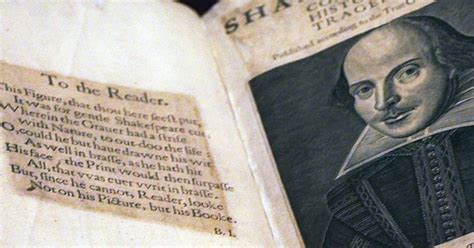 To the Reader.
This Figure, that thou here seest put,
It was for gentle Shakespeare cut;
Wherein the Grauer had a strife
with Nature, to out-doo the life
O, could he but haue drawne his wit
As well in brasse, as he hath hit
His face, the Print would then surpasse
All that vvas euer vvrit in brasse.
But, since he cannot, Reader, looke
Not on his Picture, but his Booke.
B. I.
SHA
CO
HIST
TRAGE
Published according to the True